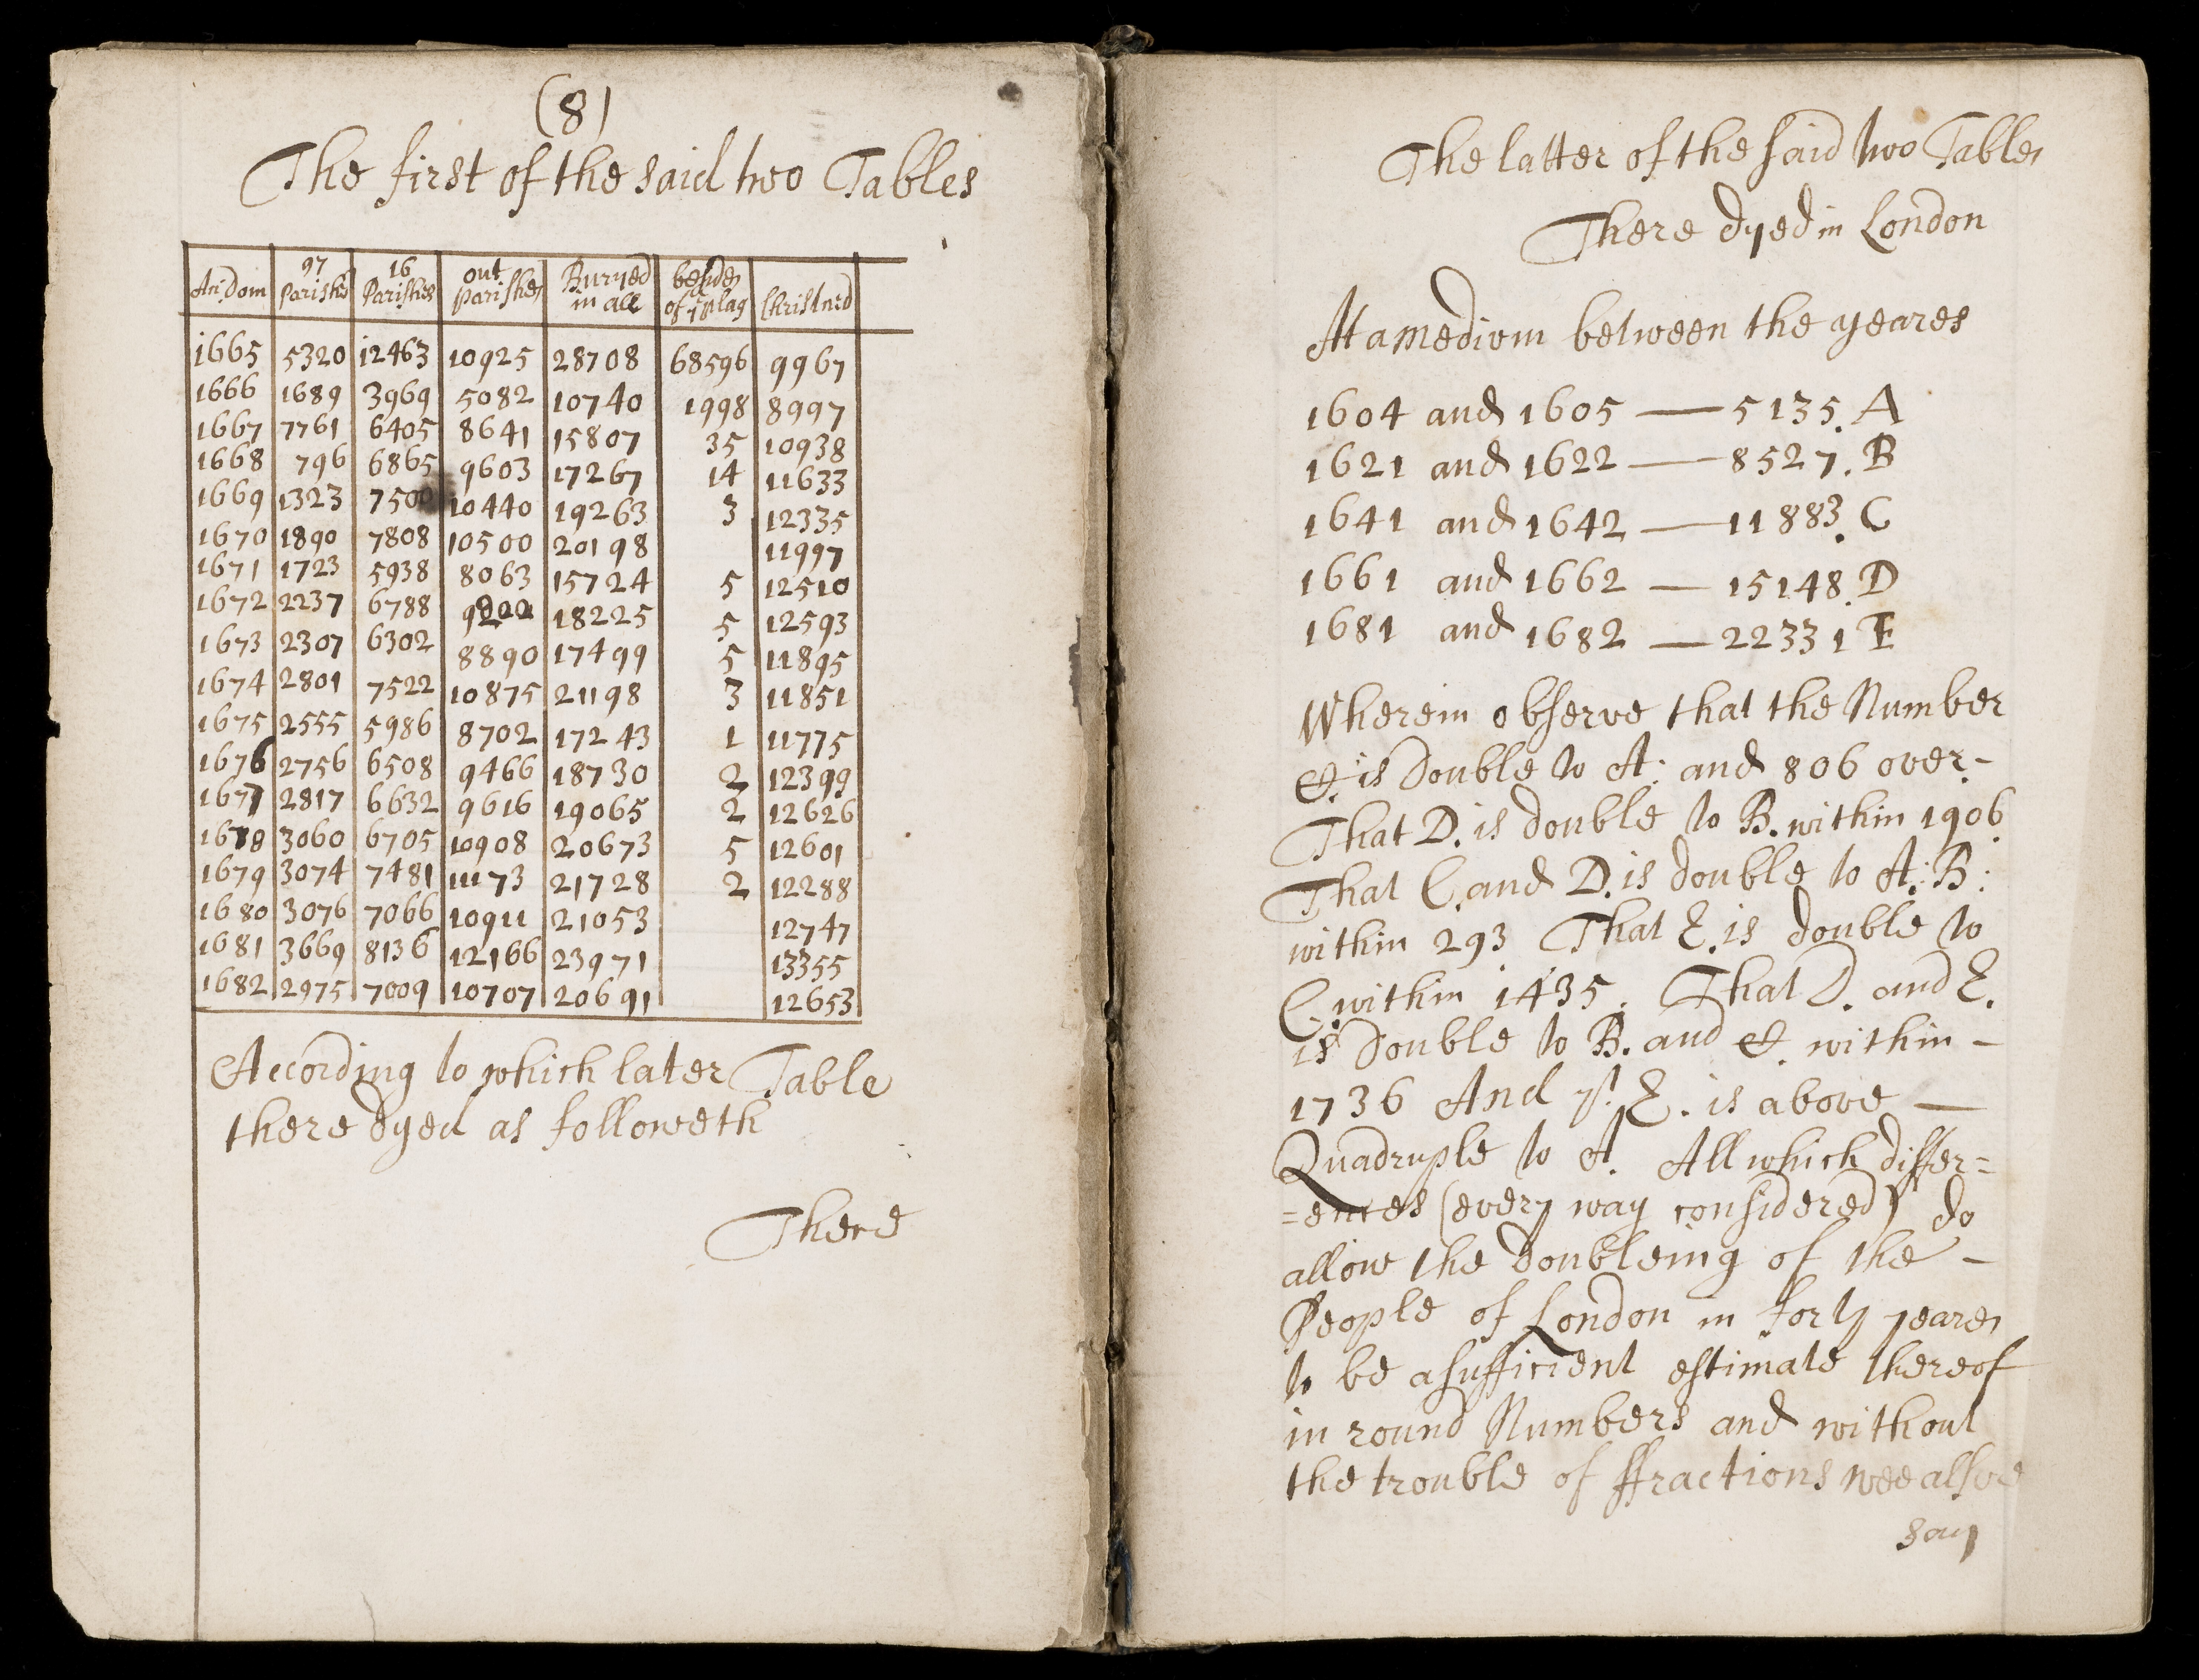 (8)
The first of the said two Tables
An° Dom 97 Parishes 16 Parishes out parishes Buryed in all besides of ye plag Christned
1665 5320 12463 10925 28708 68596 9967
1666 1689 3969 5082 10740 1998 8997
1667 7761 6405 8641 15807 35 10938
1668 796 6865 9603 17267 14 11633
1669 1323 7500 10440 19263 3 12335
1670 1890 7808 10500 20198 11997
1671 1723 5938 8063 15724 5 12510
1672 2237 6788 9200 18225 5 12593
1673 2307 6302 8890 17499 5 11895
1674 2801 7522 10875 21198 3 11851
1675 2555 5986 8702 17243 1 11775
1676 2756 6508 9466 18730 2 12399
1677 2817 6632 9616 19065 2 12626
1678 3060 6705 10908 20673 5 12601
1679 3074 7481 11173 21728 2 12288
1680 3076 7066 10911 21053 12747
1681 3669 8136 12166 23971 13355
1682 2975 7009 10707 20691 12653
According to which later Table
there dyed as followeth
There
The latter of the said two Tables
There dyed in London
At a medium between the yeares
1604 and 1605 — 5135. A
1621 and 1622 — 8527. B
1641 and 1642 — 11883. C
1661 and 1662 — 15148. D
1681 and 1682 — 22331 E
Wherein observe that the Number
C. is Double to A: and 806 over-
That D. is double to B. within 1906
That C. and D. is double to A: B:
within 293 That E. is double to
C. within 1435. That D. and E.
is Double to B. and C. within -
1736 And yt. E. is above —
Quadruple to A. All which differ=
=ences (every way considered) do
allow the doubleing of the -
People of London in forty yeares
to be a sufficient estimate thereof
in round Numbers and without
the trouble of ffractions wee alsoe
say